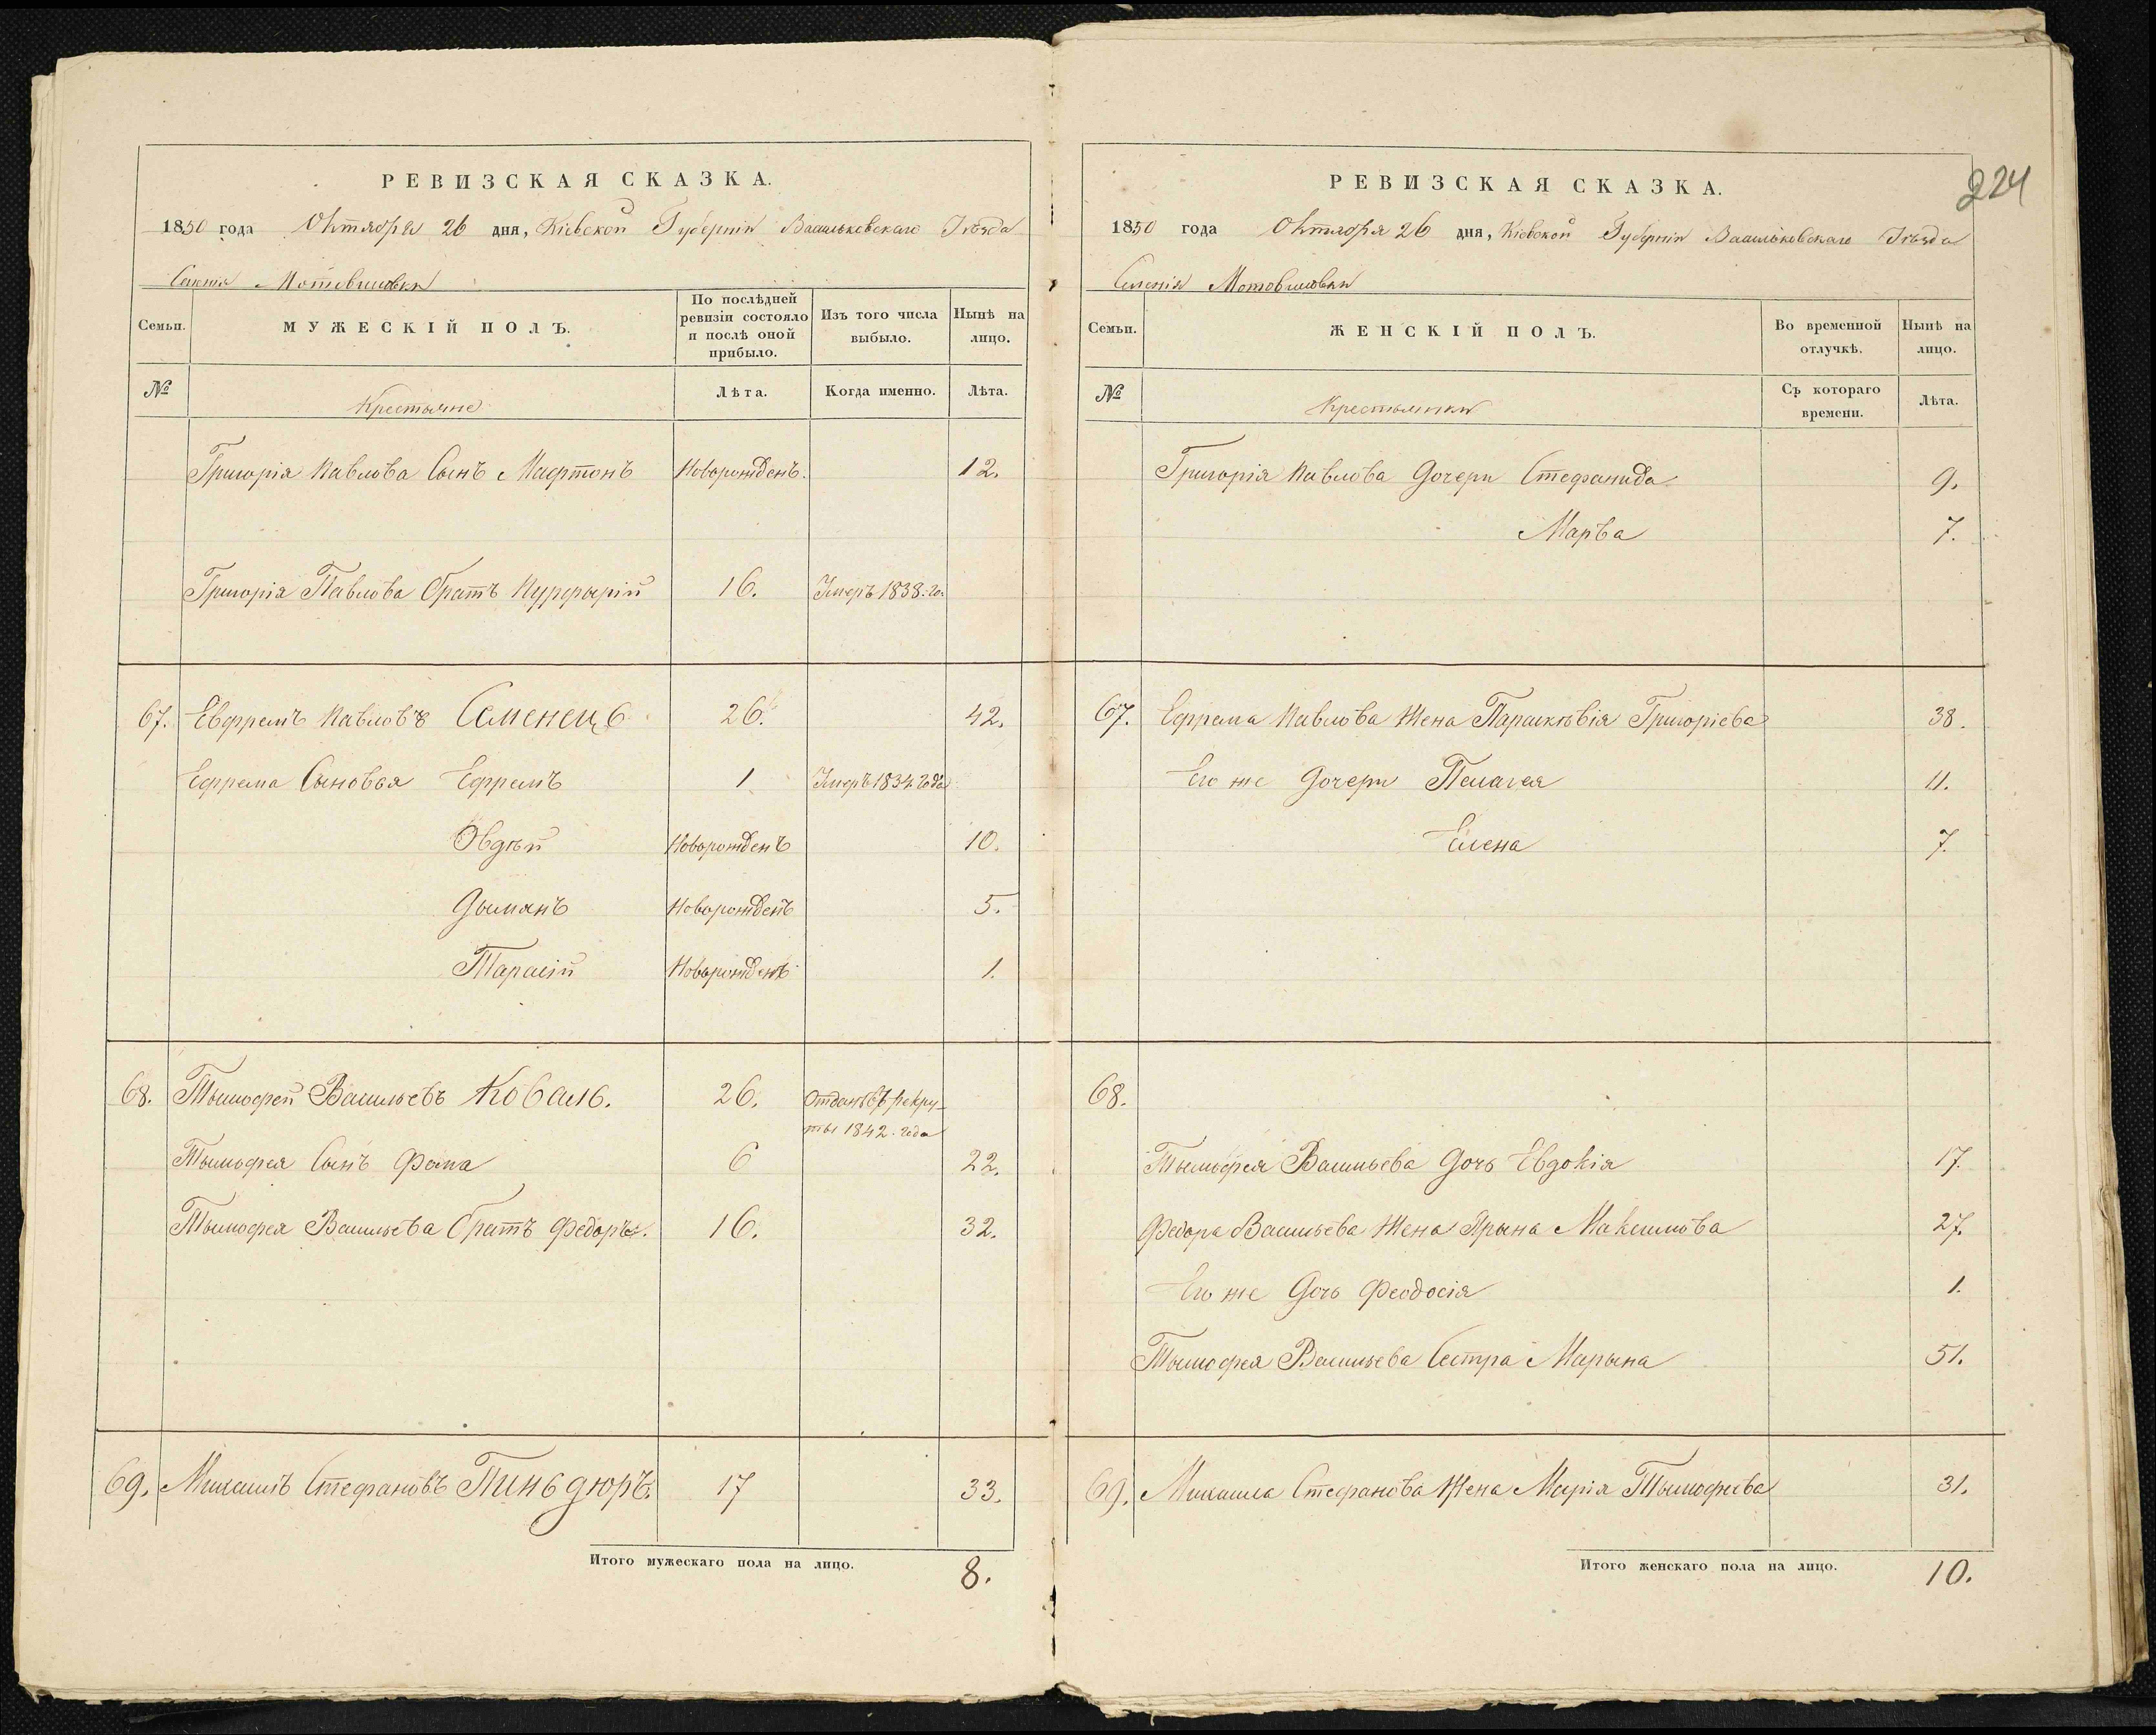 РЕВИЗСКАЯ СКАЗКА.
1850 года Октября 26 дня, Кіевской Губерніи Васильковскаго Уѣзда
Селенія Мотовиловки
Семьи.
МУЖЕСКІЙ ПОЛЪ.
По послѣдней ревизіи состояло и послѣ оной прибыло.
Изъ того числа выбыло.
Нынѣ на лицо.
№
Крестьяне
Лѣта.
Когда именно.
Лѣта.
Григорія Павлова Сынъ Мартонъ Новорожденъ. 12.
Григорія Павлова братъ Пурфырій 16. Умеръ 1838. го.
67. Евфремъ Павловъ Семенецъ 26. 42.
Ефрема Сыновья Ефремъ 1 Умеръ 1834 года
Овдѣй Новорожденъ 10.
Дымянъ Новорожденъ 5.
Тарасій Новорожденъ 1.
68. Тымофей Васильевъ Коваль. 26. Отданъ въ рекру-
ты 1842. года
Тымофея Сынъ Фома 6 22.
Тымофея Васильева братъ Федоръ. 16. 32.
69. Михаилъ Стефановъ Пиньдюръ. 17 33.
Итого мужескаго пола на лицо. 8.
224
РЕВИЗСКАЯ СКАЗКА.
1850 года Октября 26 дня, Кіевской Губерніи Васильковскаго Уѣзда
Селенія Мотовиловки
Семьи.
ЖЕНСКІЙ ПОЛЪ.
Во временной отлучкѣ.
Нынѣ на лицо.
№
Крестьянки
Съ котораго времени.
Лѣта.
Григорія Павлова Дочери Стефанида 9.
Марѳа 7.
67. Ефрема Павлова Жена Параскѣвія Григоріева 38.
Его же Дочери Пелагея 11.
Елена 7.
68.
Тымофея Васильева Дочь Евдокія 17.
Федора Васильева Жена Ярына Максимова 27.
Его же Дочь Феодосія 1.
Тымофея Васильева Сестра Марына 51.
69. Михаила Стефанова Жена Марія Тымофѣева 31.
Итого женскаго пола на лицо. 10.